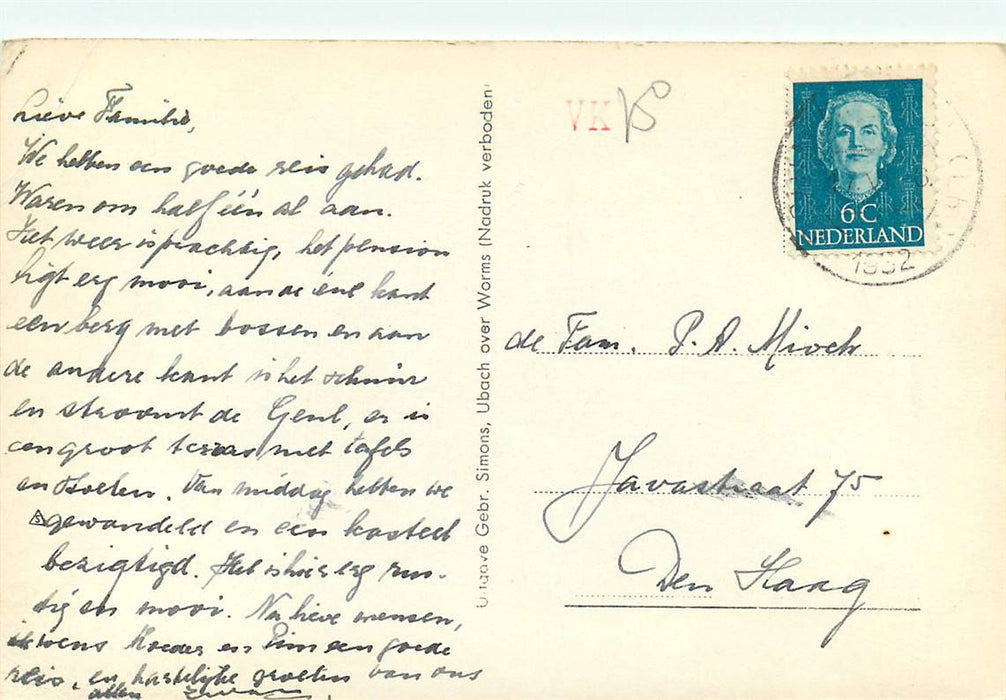 Lieve Familie,
We hebben een goede reis gehad.
Waren om half één al aan.
Het weer is prachtig, het pension
ligt erg mooi, aan de ene kant
een berg met bossen en aan
de andere kant is het schuin
en stroomt de Geul, er is
een groot terras met tafels
en stoelen. Van middag hebben we
gewandeld en een kasteel
bezigtigd. Het is hier erg rus-
tig en mooi. Nu lieve mensen,
ik wens Moeder en Pim een goede
reis, en hartelijke groeten van ons
allen
Uitgave Gebr. Simons, Ubach over Worms (Nadruk verboden)
VK
6C
NEDERLAND
1952
de Fam. P. A. Mioch
Javastraat 75
Den Haag